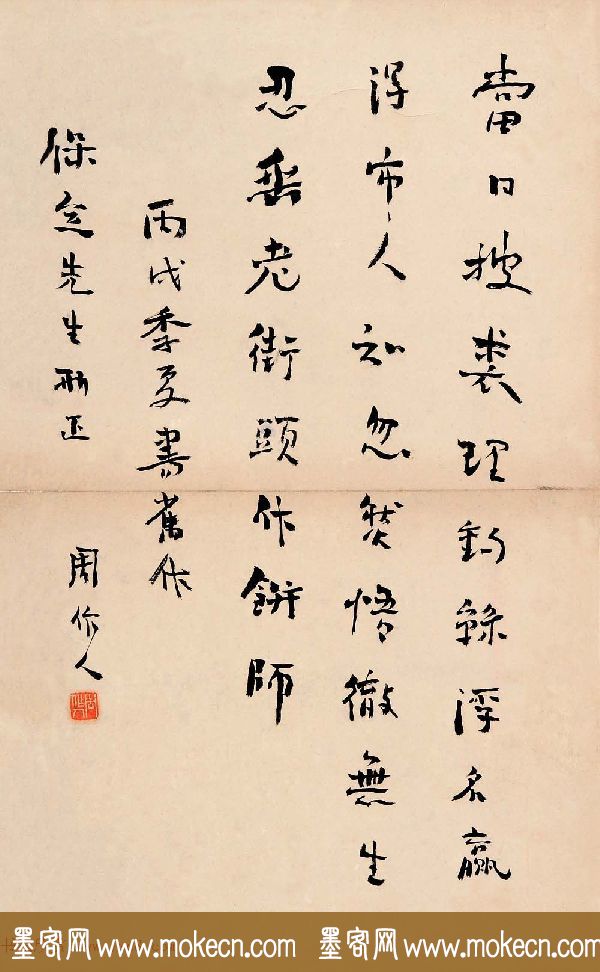 當日披裘理釣絲浮名贏
得市人知忽然悟徹無生
忍垂老街頭作餅師
丙戌季夏書舊作
保先生正
周作人
墨客网 www.mokecn.com 墨客网 www.mokecn.com